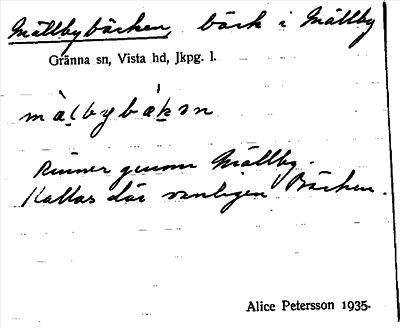 Mällbybäcken, bäck i Mällby
Gränna sn, Vista hd, Jkpg. l.
màḷbybä̀kən
Rinner genom Mällby.
Kallas där vanligen Bäcken.
Alice Petersson 1935.